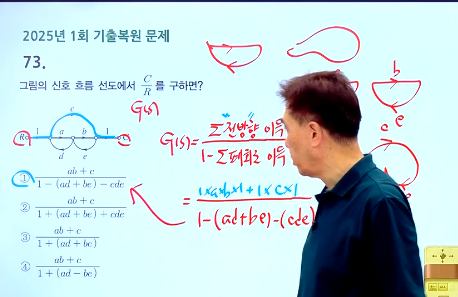 2025년 1회 기출복원 문제
73.
그림의 신호 흐름 선도에서 C/R 를 구하면?
G(s)
c
R 1 a b 1 C
d e
① ab + c / 1 − (ad + be) − cde
② ab + c / 1 + (ad + be) + cde
③ ab + c / 1 + (ad + be)
④ ab + c / 1 + (ad − be)
G(s) = Σ전방향 이득 / 1 − Σ폐회로 이득
= 1×a×b×1 + 1×c×1 / 1 − (ad+be) − (cde)
b
e
c